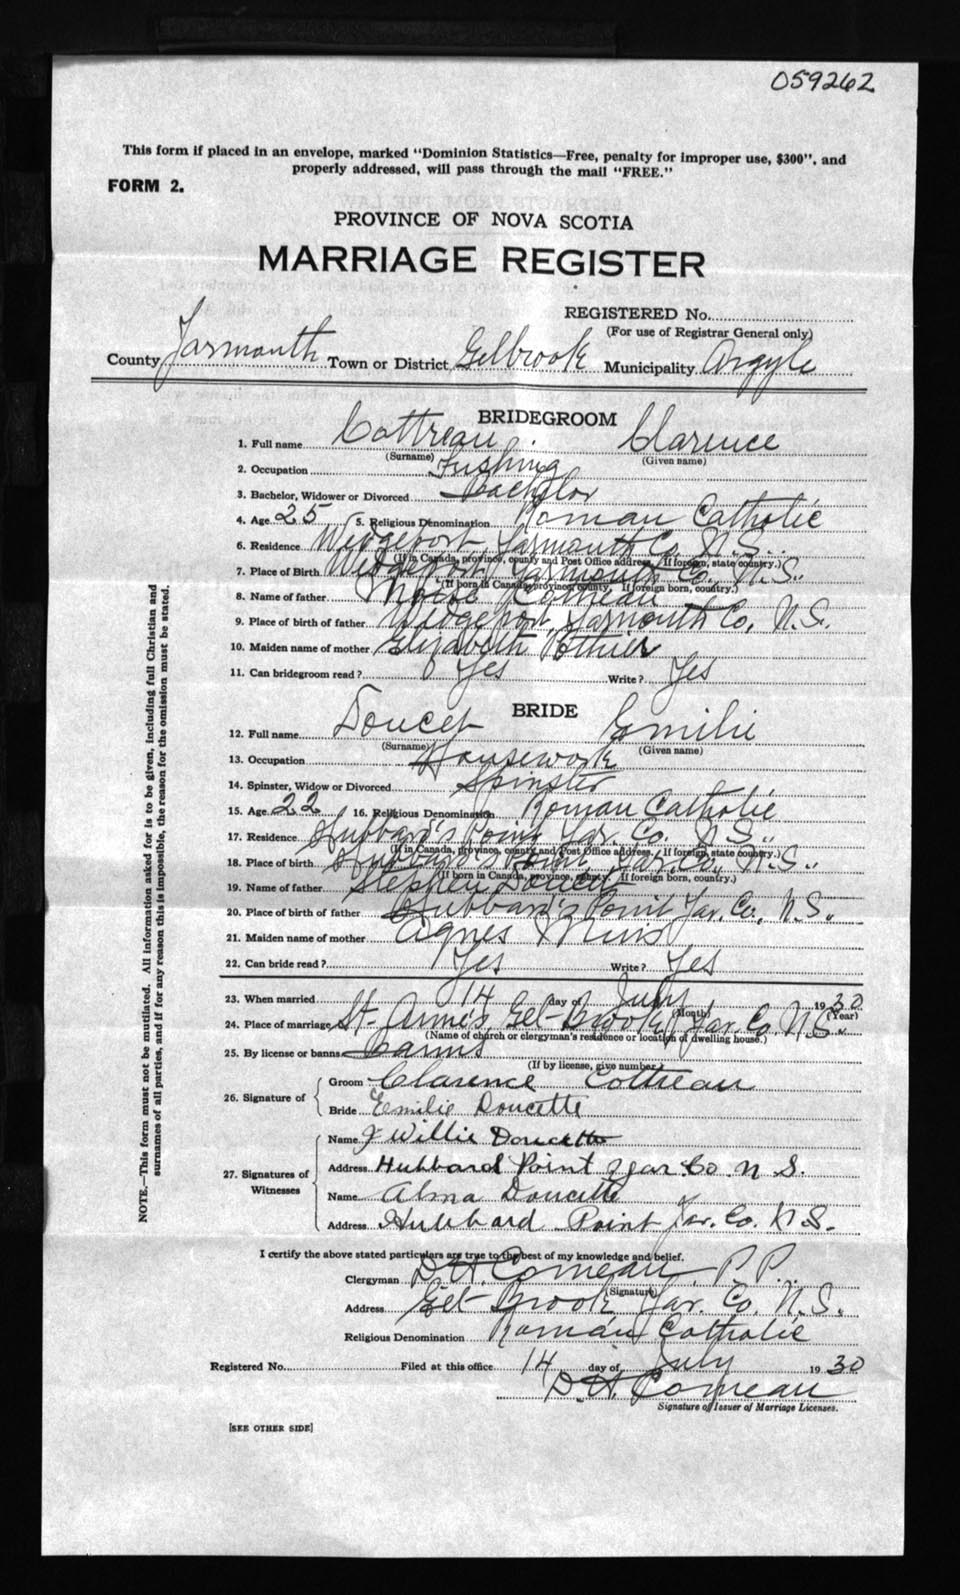 059262
This form if placed in an envelope, marked "Dominion Statistics—Free, penalty for improper use, $300", and
properly addressed, will pass through the mail "FREE."
FORM 2.
PROVINCE OF NOVA SCOTIA
MARRIAGE REGISTER
REGISTERED No.
(For use of Registrar General only)
County Yarmouth Town or District Eelbrook Municipality Argyle
BRIDEGROOM
1. Full name Cottreau Clarence
(Surname) (Given name)
2. Occupation Fishing
3. Bachelor, Widower or Divorced Bachelor
4. Age 25 5. Religious Denomination Roman Catholic
6. Residence Wedgeport Yarmouth Co. N.S.
(If in Canada, province, county and Post Office address. If foreign, state country.)
7. Place of Birth Wedgeport Yarmouth Co. N.S.
(If born in Canada, province, county. If foreign born, country.)
8. Name of father
9. Place of birth of father Wedgeport, Yarmouth Co, N.S.
10. Maiden name of mother Elizabeth Pothier
11. Can bridegroom read? Yes Write? Yes
BRIDE
12. Full name Doucet Emilie
(Surname) (Given name)
13. Occupation Housework
14. Spinster, Widow or Divorced Spinster
15. Age 22 16. Religious Denomination Roman Catholic
17. Residence Hubbard's Point Yar. Co. N.S.
(If in Canada, province, county and Post Office address. If foreign, state country.)
18. Place of birth Hubbard's Point Yar. Co., N.S.
(If born in Canada, province, county. If foreign born, country.)
19. Name of father Stephen Doucet
20. Place of birth of father Hubbard's Point Yar. Co, N.S.
21. Maiden name of mother Agnes Muis
22. Can bride read? Yes Write? Yes
23. When married 14 day of July 1930
(Month) (Year)
24. Place of marriage St. Anne's, Eel-Brook, Yar. Co. N.S.
(Name of church or clergyman's residence or location of dwelling house.)
25. By license or banns Banns
(If by license, give number.)
26. Signature of
Groom Clarence Cottreau
Bride Emilie Doucette
27. Signatures of Witnesses
Name J Willie Doucette
Address Hubbard Point Yar. Co N S.
Name Alma Doucette
Address Hubbard Point Yar. Co. N.S.
I certify the above stated particulars are true to the best of my knowledge and belief.
Clergyman D.H. Comeau, P.P.
(Signature)
Address Eel Brook Yar. Co. N.S.
Religious Denomination Roman Catholic
Registered No. Filed at this office 14 day of July 1930
D.H. Comeau
Signature of Issuer of Marriage Licenses.
[SEE OTHER SIDE]
NOTE.—This form must not be mutilated. All information asked for is to be given, including full Christian and
surnames of all parties, and if for any reason this is impossible, the reason for the omission must be stated.